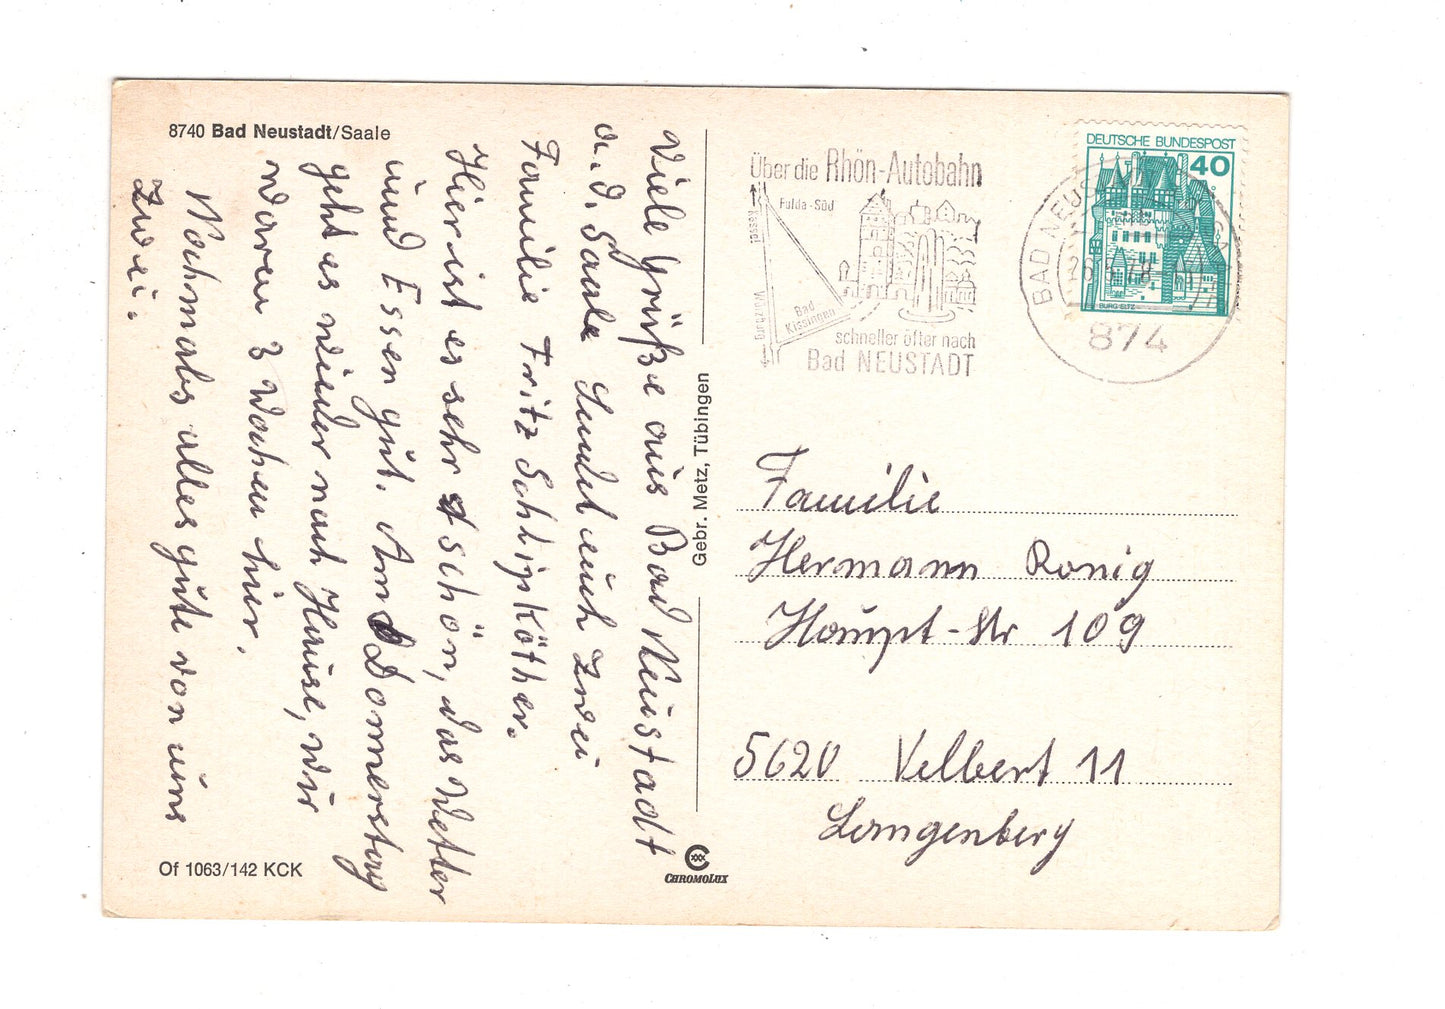 8740 Bad Neustadt/Saale
Viele Grüße aus Bad Neustadt
a.d. Saale Sendet euch Zwei
Familie Fritz Schlipköther.
Hier ist es sehr schön, das Wetter
und Essen gut. Am Donnerstag
geht es wieder nach Hause, wir
waren 3 Wochen hier.
Nochmals alles gute von uns
Zwei.
Of 1063/142 KCK
Gebr. Metz, Tübingen
CHROMOLUX
Über die Rhön-Autobahn
Fulda-Süd
Kassel
Würzburg
Bad
Kissingen
schneller öfter nach
Bad NEUSTADT
DEUTSCHE BUNDESPOST
40
BURG ELTZ
BAD NEUS
874
Familie
Hermann Ronig
Haupt-Str 109
5620 Velbert 11
Langenberg